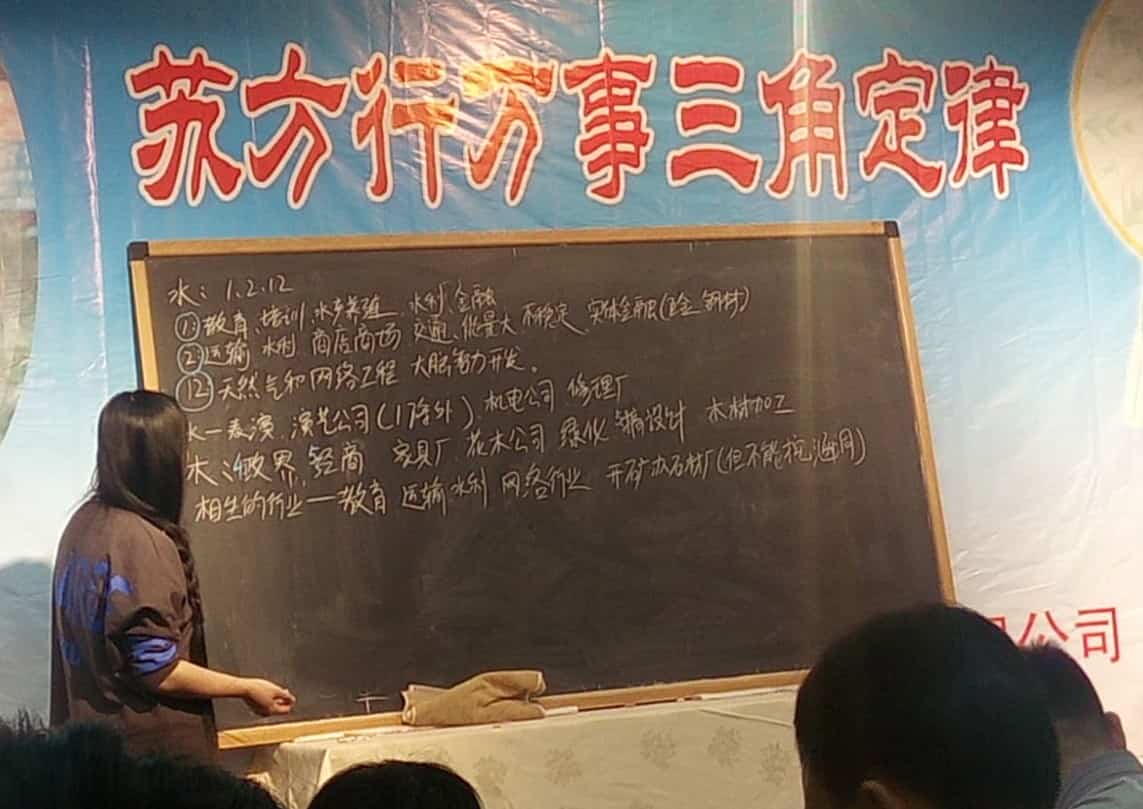 苏方行万事三角定律
水：1、2、12
① 教育 培训 水产养殖 水利 金融
② 运输 水利 商店商场 交通、能量大 不稳定 实体金融(五金 钢材)
⑫ 天然气和网络工程 大脑智力开发。
水一表演 演艺公司(1除外) 机电公司 修理厂
木：政界，经商 家具厂 花木公司 绿化 设计 木材加工
相生的行业一教育 运输 水利 网络行业 开矿 石材厂(但不能挖
公司